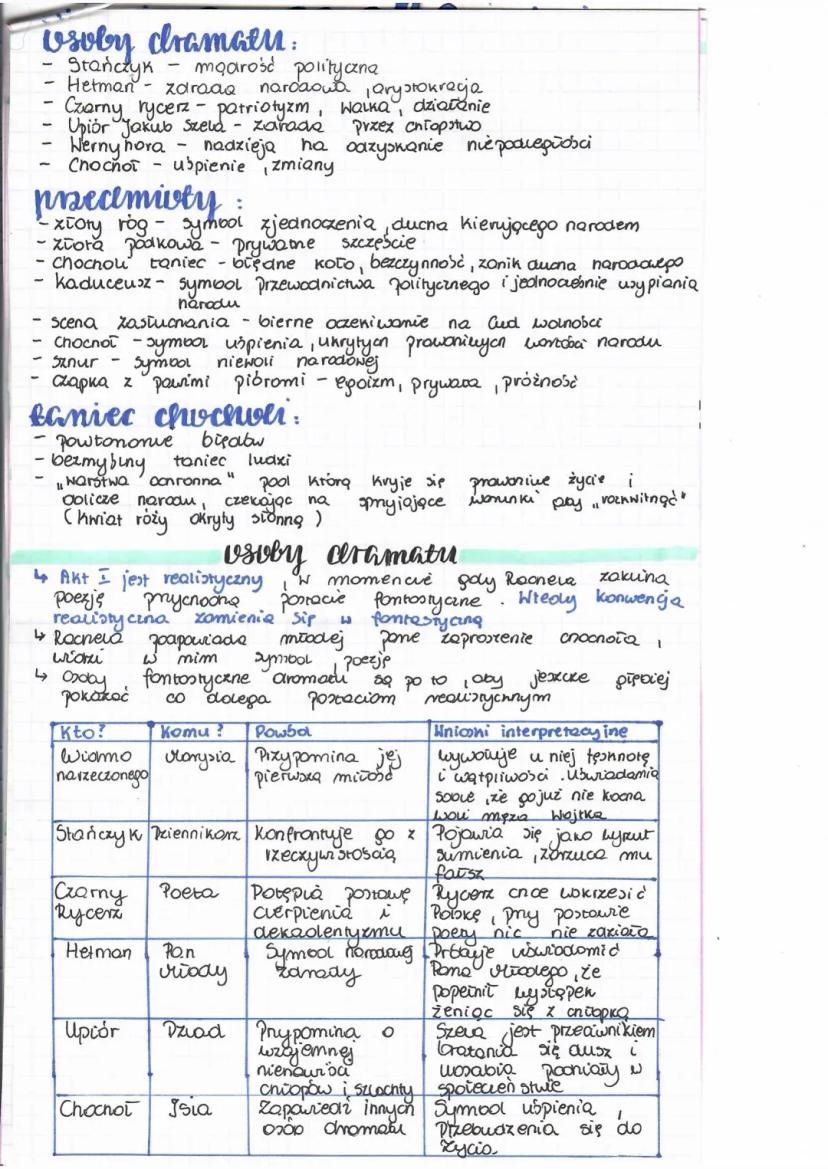 osoby dramatu:
- Stańczyk - mądrość polityczna
- Hetman - zdrada narodowa, arystokracja
- Czarny rycerz - patriotyzm, walka, działanie
- Upiór Jakub Szela - zdrada przez chłopstwo
- Wernyhora - nadzieja na odzyskanie niepodległości
- Chochoł - uśpienie, zmiany
przedmioty:
- złoty róg - symbol zjednoczenia, ducha kierującego narodem
- złota podkowa - prywatne szczęście
- chocholi taniec - błędne koło, bezczynność, zanik ducha narodowego
- kaduceusz - symbol przewodnictwa politycznego i jednocześnie usypiania
narodu
- scena zasłuchania - bierne oczekiwanie na cud wolności
- chochoł - symbol uśpienia, ukrytych prawdziwych wartości narodu
- sznur - symbol niewoli narodowej
- czapka z pawimi piórami - egoizm, prywata, próżność
taniec chocholi:
- powtórzone błędów
- bezmyślny taniec ludzi
- „warstwa ochronna" pod którą kryje się prawdziwe życie i
oblicze narodu, czekając na sprzyjające warunki aby „rozkwitnąć"
(kwiat róży okryty słomą)
osoby dramatu
↳ Akt I jest realistyczny, w momencie gdy Rachela zaklina
poezję przychodzą postacie fantastyczne. Wtedy konwencja
realistyczna zamienia się w fantastyczną
↳ Rachela podpowiada młodej parze zaproszenie chochoła,
widzi w nim symbol, poezję
↳ Osoby fantastyczne dramatu są po to, aby jeszcze głębiej
pokazać co dolega postaciom realistycznym
Kto? Komu? Powód Wnioski interpretacyjne
Widmo narzeczonego
Marysia
Przypomina jej
pierwszą miłość
wywołuje u niej tęsknotę
i wątpliwości. Uświadamia
sobie, że go już nie kocha
woli męża Wojtka
Stańczyk
Dziennikarz
Konfrontuje go z
rzeczywistością
Pojawia się jako wyrzut
sumienia, zarzuca mu
fałsz
Czarny
Rycerz
Poeta
Potępia postawę
cierpienia i
dekadentyzmu
Rycerz chce wskrzesić
Polskę, przy postawie
poety nic nie zdziała
Hetman
Pan
Młody
Symbol narodowej
zdrady
Próbuje uświadomić
Pana Młodego, że
popełnił występek
żeniąc się z chłopką
Upiór
Dziad
Przypomina o
wzajemnej
nienawiści
chłopów i szlachty
Szela jest przeciwnikiem
bratania się dusz i
uosabia podziały w
społeczeństwie
Chochoł
Isia
Zapowiedź innych
osób dramatu
Symbol uśpienia,
Przebudzenia się do
życia